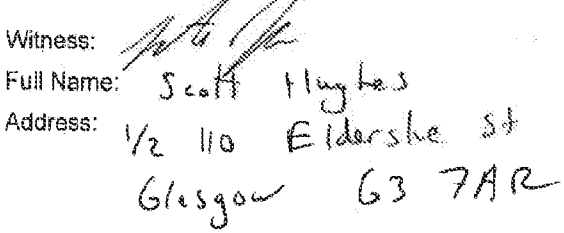 Witness:
Full Name: Scott Hughes
Address: 1/2 110 Elderslie St
Glasgow G3 7AR